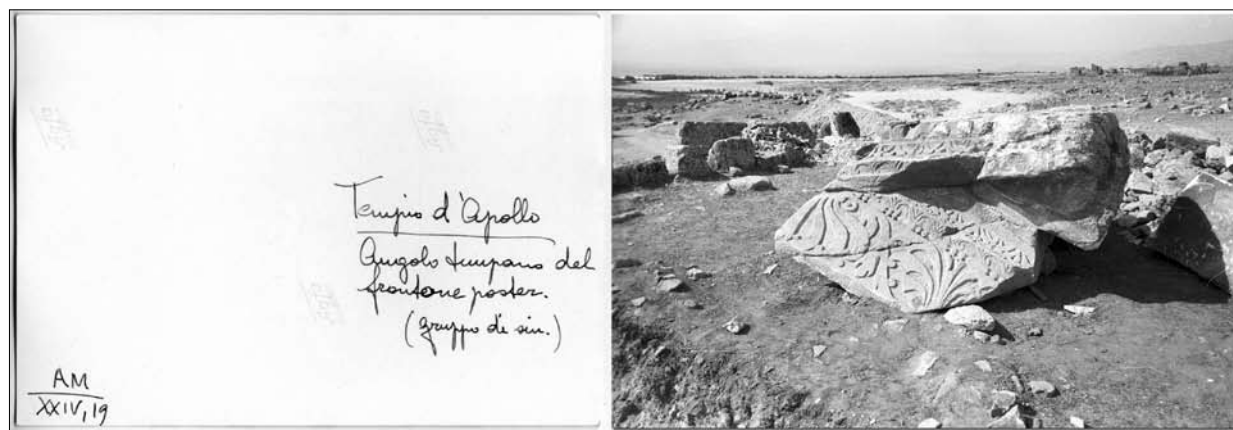 Tempio d'Apollo
Angolo timpano del
frontone poster.
(gruppo di sin.)
AM
XXIV, 19